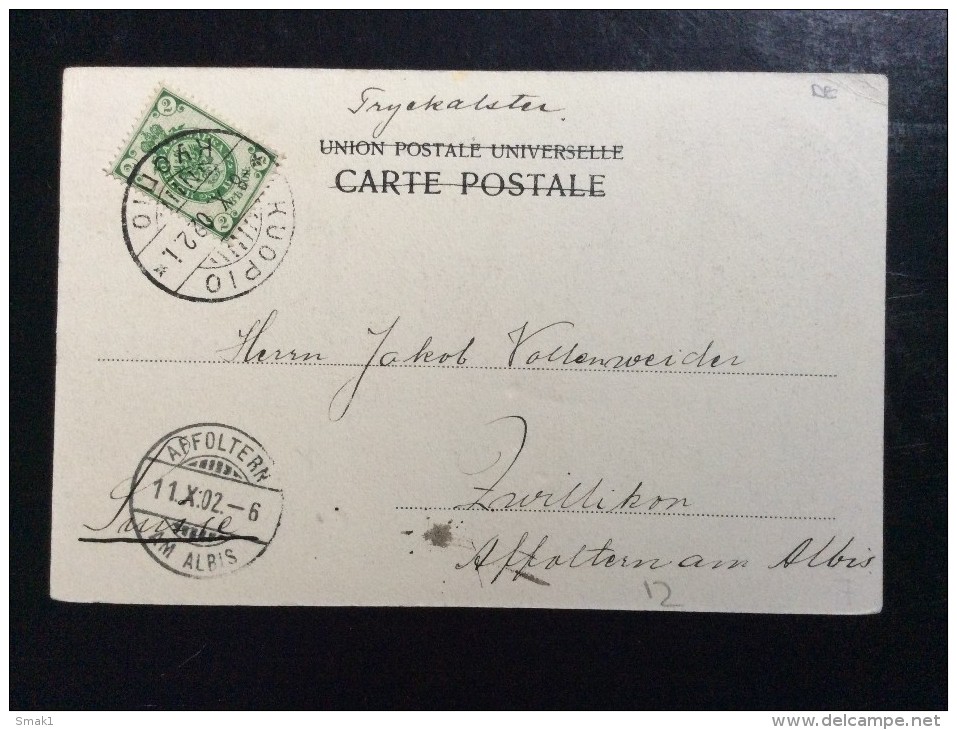 Tryckalster
UNION POSTALE UNIVERSELLE
CARTE POSTALE
2
2
КУОПІО
KUOPIO
X 02
1
Herrn Jakob Vollenweider
Zwillikon
Affoltern am Albis
Suisse
AFFOLTERN
11.X.02.–6
AM ALBIS
12
Smak1
www.delcampe.net